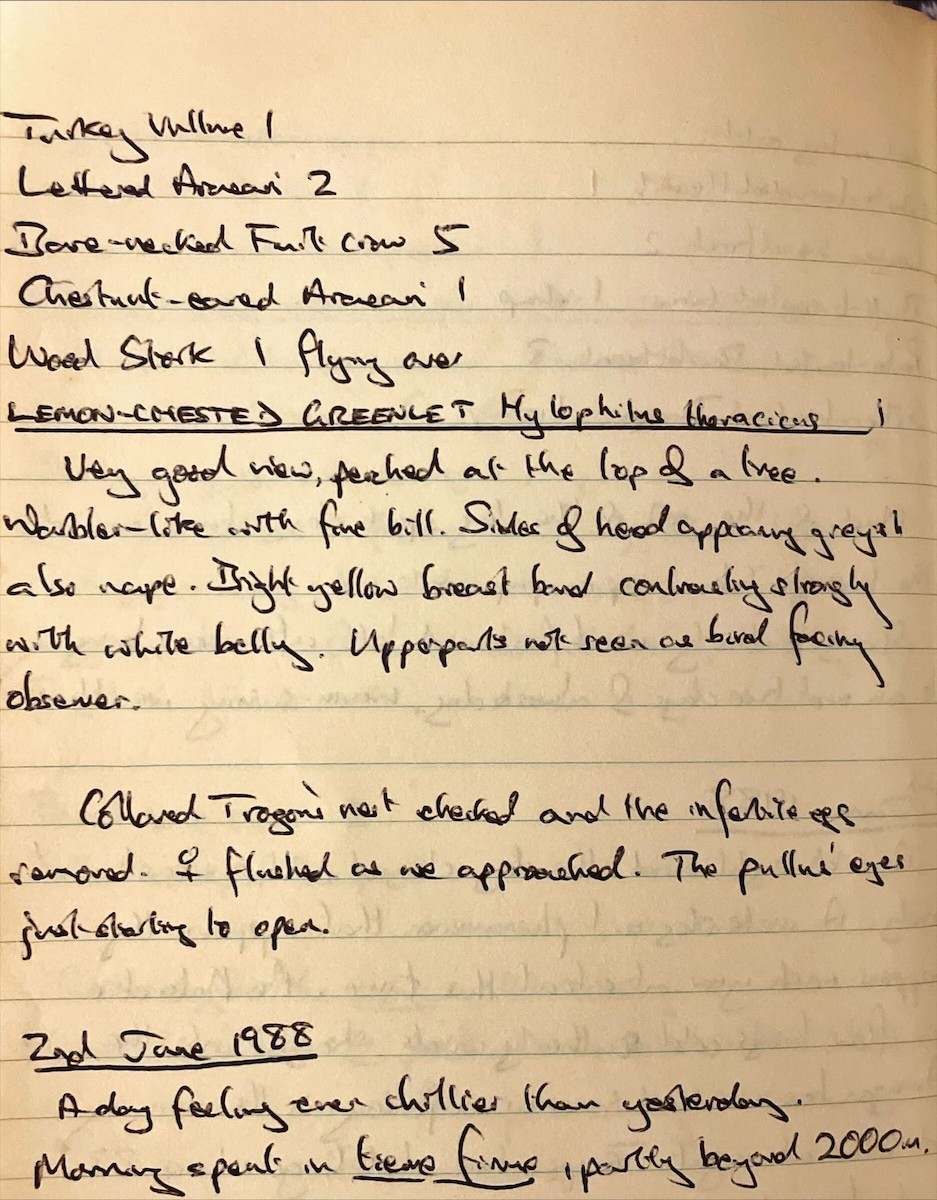 Turkey Vulture 1
Lettered Aracari 2
Bare-necked Fruit crow 5
Chestnut-eared Aracari 1
Wood Stork 1 flying over
LEMON-CHESTED GREENLET Hylophilus thoracicus 1
Very good view, perched at the top of a tree.
Warbler-like with fine bill. Sides of head appearing greyish
also nape. Bright yellow breast band contrasting strongly
with white belly. Upperparts not seen as bird facing
observer.
Collared Trogon's nest checked and the infertile egg
removed. ♀ flushed as we approached. The pullus' eyes
just starting to open.
2nd June 1988
A day feeling even chillier than yesterday.
Morning spent in tierra firme, partly beyond 2000m.